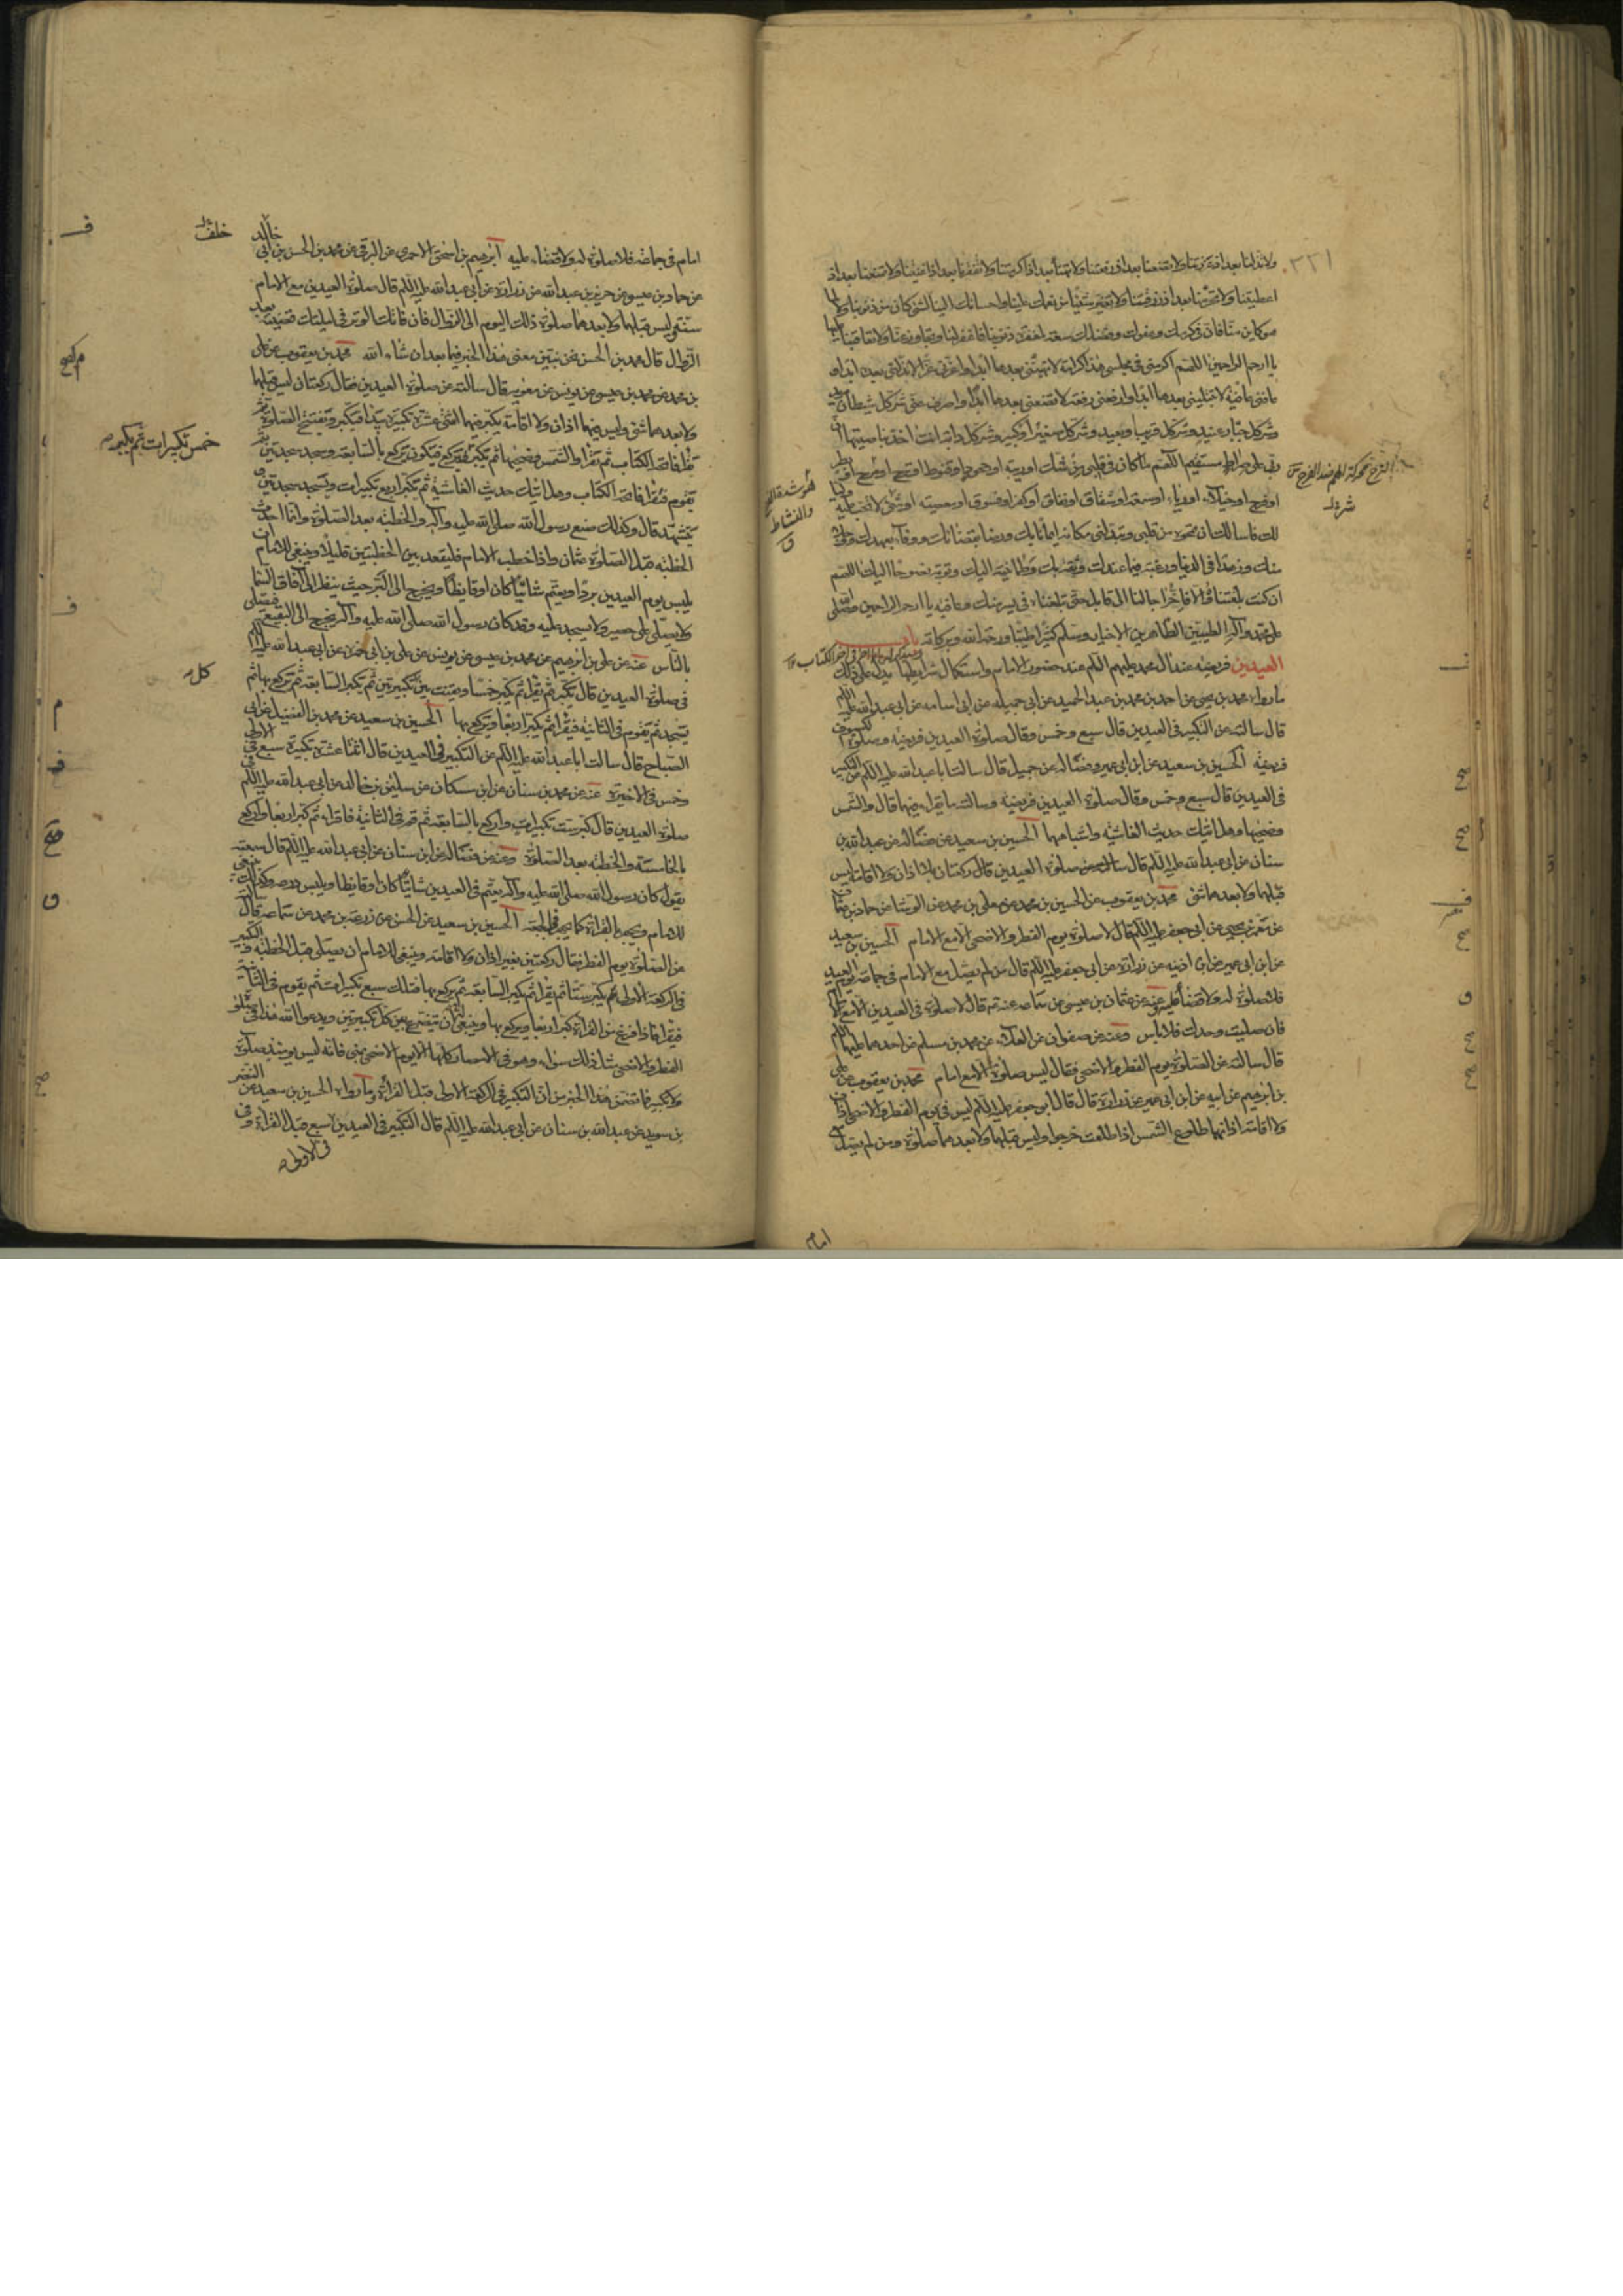 ٢٣١
ولا تذلنا بعد اذ عززتنا ولا تضعنا بعد اذ رفعتنا ولا تهنا بعد اذ اكرمتنا ولا تفقرنا بعد اذ اغنيتنا ولا تمنعنا بعد اذ
اعطيتنا ولا تحرمنا بعد اذ رزقتنا ولا تغير شيئا من نعمك علينا واحسانك الينا لشئ كان من ذنوبنا ولا لما
هو كاين منا فان في كرمك وعفوك وفضلك سعة لمغفرة ذنوبنا فاغفر لنا وتجاوز عنا ولا تعاقبنا عليها
يا ارحم الراحمين اللهم اكرمني في مجلسي هذا كرامة لا تهينني بعدها ابدا واعزني عزا لا تذلني بعده ابدا و
عافني عافية لا تبتليني بعدها ابدا وارفعني رفعة لا تضعني بعدها ابدا واصرف عني شر كل شيطان مريد
وشر كل جبار عنيد وشر كل قريب او بعيد وشر كل صغير او كبير وشر كل دابة انت اخذ بناصيتها ان
ربي على صراط مستقيم اللهم ما كان في قلبي من شك او ريبة او جحود او قنوط او فرح او مرح او بطر
او فرح او خيلاء او رياء او سمعة او شقاق او نفاق او كفر او فسوق او معصية او شئ لا تحب عليه وليا
لك فاسالك ان تمحوه من قلبي وتبدلني مكانه ايمانا بك ورضا بقضائك ووفاء بعهدك ووجلا
منك وزهدا في الدنيا ورغبة فيما عندك وثقة بك وطمانينة اليك وتوبة نصوحا اليك اللهم
ان كنت بلغتنا والا فاخر اجالنا الى قابل حتى تبلغناه في يسر منك وعافية يا ارحم الراحمين وصلى
على محمد وآله الطيبين الطاهرين الاخيار وسلم كثيرا طيبا ورحمة الله وبركاته باب صلوة
العيدين فريضة عند آل محمد عليهم السلام عند حضور الامام واستكمال شرايطها يدل على ذلك
ما رواه محمد بن يحيى عن احمد بن محمد بن عبد الحميد عن ابي جميله عن ابي اسامه عن ابي عبد الله عليه السلام
قال سالته عن التكبير في العيدين قال سبع وخمس وقال صلوة العيدين فريضة وصلوة الكسوف
فريضة الحسين بن سعيد عن ابن ابي عمير وفضاله عن جميل قال سالت ابا عبد الله عليه السلام عن التكبير
في العيدين قال سبع وخمس وقال صلوة العيدين فريضة وسالته ما يقراء فيهما قال والشمس
وضحيها وهل اتيك حديث الغاشية واشباههما الحسين بن سعيد عن فضالة عن عبد الله بن
سنان عن ابي عبد الله عليه السلام قال سالته عن صلوة العيدين قال ركعتان بلا اذان ولا اقامة ليس
قبلهما ولا بعدهما شئ محمد بن يعقوب عن الحسين بن محمد عن معلى بن محمد عن الوشا عن حماد بن عثمان
عن معمر بن يحيى عن ابي جعفر عليه السلام قال لا صلوة يوم الفطر والاضحى الا مع الامام الحسين بن سعيد
عن ابن ابي عمير عن ابن اذينه عن زرارة عن ابي جعفر عليه السلام قال من لم يصل مع الامام في جماعة يوم العيد
فلا صلوة له ولا قضاء عليه وعنه عن عثمان بن عيسى عن سماعه عنه ع قال لا صلوة في العيدين الا مع امام
فان صليت وحدك فلا باس وعنه عن صفوان عن العلاء عن محمد بن مسلم عن احدهما عليهما السلام
قال سالته عن الصلوة يوم الفطر والاضحى فقال ليس صلوة الا مع امام محمد بن يعقوب عن علي
بن ابرهيم عن ابيه عن ابن ابي عمير عن زرارة قال قال ابو جعفر عليه السلام ليس في يوم الفطر والاضحى اذان
ولا اقامة اذانهما طلوع الشمس اذا طلعت خرجوا وليس قبلهما ولا بعدهما صلوة ومن لم يصل مع
امام
امام في جماعة فلا صلوة له ولا قضاء عليه ابرهيم بن اسحق الاحمري عن البرقي عن محمد بن الحسن بن ابي خالد
خلف
عن حماد بن عيسى عن حريز بن عبد الله عن زرارة عن ابي عبد الله عليه السلام قال صلوة العيدين مع الامام
سنة وليس قبلهما ولا بعدهما صلوة ذلك اليوم الى الزوال فان فاتك الوتر في ليلتك قضيته بعد
الزوال قال محمد بن الحسن نحن نبين معنى هذا الخبر فيما بعد ان شاء الله محمد بن يعقوب عن علي
بن محمد عن محمد بن عيسى عن يونس عن معوية قال سالته عن صلوة العيدين فقال ركعتان ليس قبلهما
ولا بعدهما شئ وليس فيهما اذان ولا اقامة يكبر فيهما اثنتي عشرة تكبيرة يبدا فيكبر ويفتتح الصلوة ثم
يقرا فاتحة الكتاب ثم يقرا والشمس وضحيها ثم يكبر خمس تكبيرات ثم يكبر ويركع فيكون يركع بالسابعة ويسجد سجدتين ثم
يقوم فيقرا فاتحة الكتاب وهل اتيك حديث الغاشية ثم يكبر اربع تكبيرات ويسجد سجدتين و
يتشهد قال وكذلك صنع رسول الله صلى الله عليه وآله والخطبة بعد الصلوة وانما احدث
الخطبة قبل الصلوة عثمان واذا خطب الامام فليقعد بين الخطبتين قليلا وينبغي للامام ان
يلبس يوم العيدين بردا ويعتم شاتيا كان او قايظا ويخرج الى البر حيث ينظر الى آفاق السماء
ولا يصلي على حصير ولا يسجد عليه وقد كان رسول الله صلى الله عليه وآله يخرج الى البقيع فيصلي
بالناس عنه عن علي بن ابرهيم عن محمد بن عيسى عن يونس عن علي بن ابي حمزة عن ابي عبد الله عليه السلام
في صلوة العيدين قال يكبر ثم يقرا ثم يكبر خمسا ويقنت بين كل تكبيرتين ثم يكبر السابعة ثم يركع بها ثم
يسجد ثم يقوم في الثانية فيقرا ثم يكبر اربعا ويركع بها الحسين بن سعيد عن محمد بن الفضيل عن ابي
الصباح قال سالت ابا عبد الله عليه السلام عن التكبير في العيدين قال اثنتا عشرة تكبيرة سبع في الاولى
وخمس في الاخيرة عنه عن محمد بن سنان عن ابن مسكان عن سليمن بن خالد عن ابي عبد الله عليه السلام في
صلوة العيدين قال كبر ست تكبيرات واركع بالسابعة ثم قم في الثانية فاقراء ثم كبر اربعا واركع
بالخامسة والخطبة بعد الصلوة وعنه عن فضالة عن ابن سنان عن ابي عبد الله عليه السلام قال سمعته
يقول كان رسول الله صلى الله عليه وآله يعتم في العيدين شاتيا كان او قايظا ويلبس درعه وكذلك ينبغي
للامام ويجهر بالقراءة كما يجهر في الجمعة الحسين بن سعيد عن الحسن عن زرعة بن محمد عن سماعه قال سالته
عن الصلوة يوم الفطر فقال ركعتين بغير اذان ولا اقامة وينبغي للامام ان يصلي قبل الخطبة والتكبير
في الركعة الاولى يكبر ستا ثم يقرا ثم يكبر السابعة ثم يركع بها فتلك سبع تكبيرات ثم يقوم في الثانية
فيقرا فاذا فرغ من القراءة كبر اربعا ويركع بها وينبغي ان يتضرع بين كل تكبيرتين ويدعوا الله هذا في صلوة
الفطر والاضحى مثل ذلك سواء وهو في الامصار كلها الا يوم الاضحى بمنى فانه ليس يومئذ صلوة
ولا تكبير فاما تضمن هذا الخبر من ان التكبير في الركعة الاولى قبل القراءة وما رواه الحسين بن سعيد عن النضر
بن سويد عن عبد الله بن سنان عن ابي عبد الله عليه السلام قال التكبير في العيدين سبع قبل القراءة وفي
في الاولى